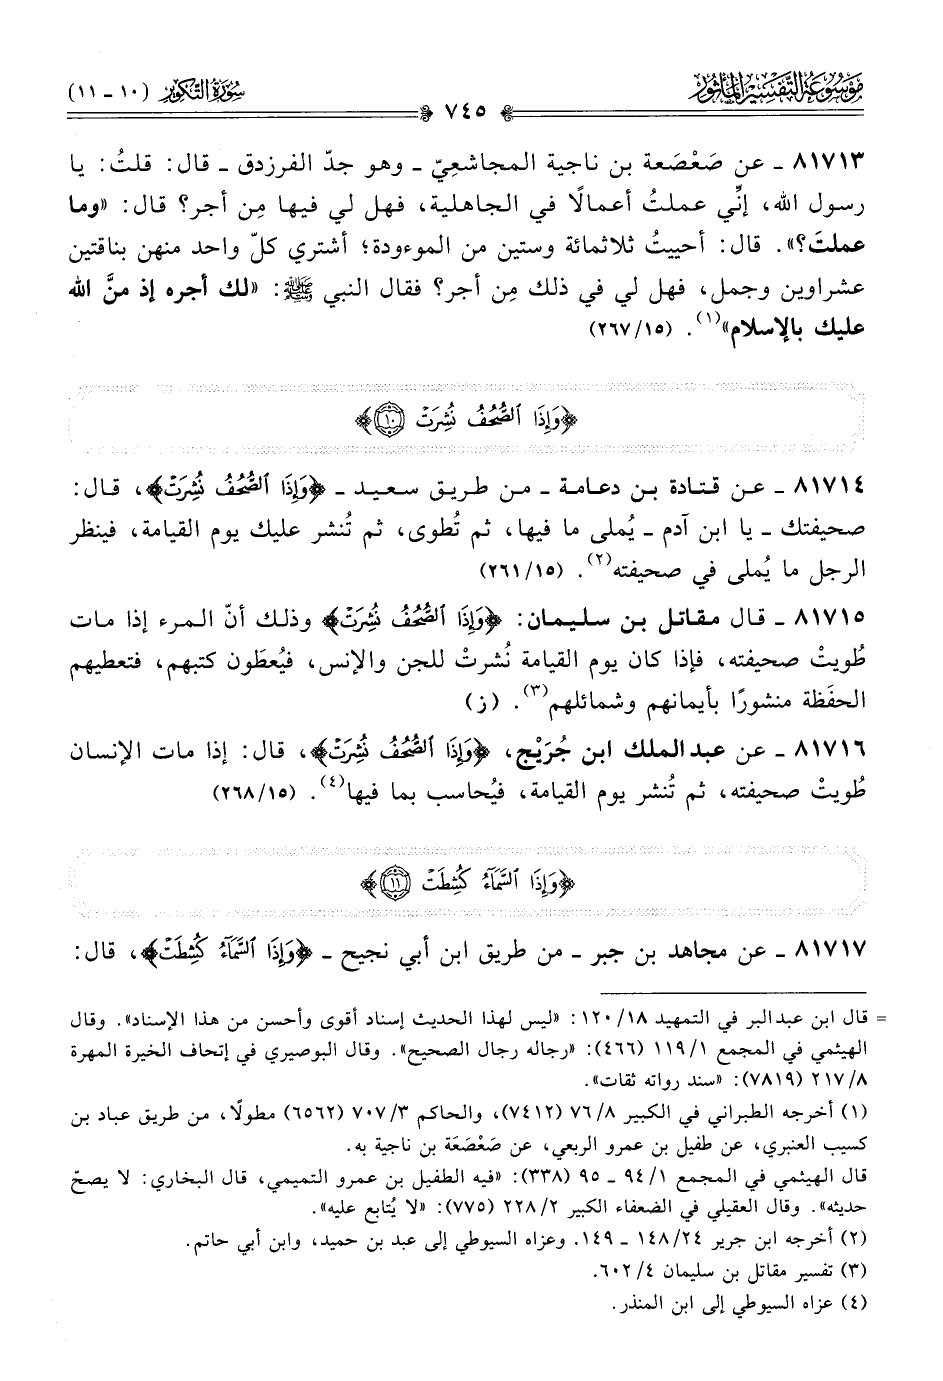 موسوعة التفسير المأثور
سورة التكوير (١٠ - ١١)
٧٤٥
٨١٧١٣ ـ عن صَعْصَعة بن ناجية المجاشعيّ ـ وهو جدّ الفرزدق ـ قال: قلتُ: يا
رسول الله، إنِّي عملتُ أعمالًا في الجاهلية، فهل لي فيها مِن أجر؟ قال: «وما
عملتَ؟». قال: أحييتُ ثلاثمائة وستين من الموءودة؛ أشتري كلّ واحد منهن بناقتين
عشراوين وجمل، فهل لي في ذلك مِن أجر؟ فقال النبي ﷺ: «لك أجره إذ منَّ الله
عليك بالإسلام»(١). (٢٦٧/١٥)
﴿وَإِذَا ٱلصُّحُفُ نُشِرَتْ ١٠﴾
٨١٧١٤ ـ عن قتادة بن دعامة ـ من طريق سعيد ـ ﴿وَإِذَا ٱلصُّحُفُ نُشِرَتْ﴾، قال:
صحيفتك ـ يا ابن آدم ـ يُملى ما فيها، ثم تُطوى، ثم تُنشر عليك يوم القيامة، فينظر
الرجل ما يُملى في صحيفته(٢). (٢٦١/١٥)
٨١٧١٥ ـ قال مقاتل بن سليمان: ﴿وَإِذَا ٱلصُّحُفُ نُشِرَتْ﴾ وذلك أنّ المرء إذا مات
طُويتْ صحيفته، فإذا كان يوم القيامة نُشرتْ للجن والإنس، فيُعطَون كتبهم، فتعطيهم
الحفَظة منشورًا بأيمانهم وشمائلهم(٣). (ز)
٨١٧١٦ ـ عن عبدالملك ابن جُرَيْج، ﴿وَإِذَا ٱلصُّحُفُ نُشِرَتْ﴾، قال: إذا مات الإنسان
طُويتْ صحيفته، ثم تُنشر يوم القيامة، فيُحاسب بما فيها(٤). (٢٦٨/١٥)
﴿وَإِذَا ٱلسَّمَآءُ كُشِطَتْ ١١﴾
٨١٧١٧ ـ عن مجاهد بن جبر ـ من طريق ابن أبي نجيح ـ ﴿وَإِذَا ٱلسَّمَآءُ كُشِطَتْ﴾، قال:
= قال ابن عبدالبر في التمهيد ١٢٠/١٨: «ليس لهذا الحديث إسناد أقوى وأحسن من هذا الإسناد». وقال
الهيثمي في المجمع ١١٩/١ (٤٦٦): «رجاله رجال الصحيح». وقال البوصيري في إتحاف الخيرة المهرة
٢١٧/٨ (٧٨١٩): «سند رواته ثقات».
(١) أخرجه الطبراني في الكبير ٧٦/٨ (٧٤١٢)، والحاكم ٧٠٧/٣ (٦٥٦٢) مطولًا، من طريق عباد بن
كسيب العنبري، عن طفيل بن عمرو الربعي، عن صَعْصَعَة بن ناجية به.
قال الهيثمي في المجمع ٩٤/١ ـ ٩٥ (٣٣٨): «فيه الطفيل بن عمرو التميمي، قال البخاري: لا يصحّ
حديثه». وقال العقيلي في الضعفاء الكبير ٢٢٨/٢ (٧٧٥): «لا يُتابع عليه».
(٢) أخرجه ابن جرير ١٤٨/٢٤ ـ ١٤٩. وعزاه السيوطي إلى عبد بن حميد، وابن أبي حاتم.
(٣) تفسير مقاتل بن سليمان ٦٠٢/٤.
(٤) عزاه السيوطي إلى ابن المنذر.